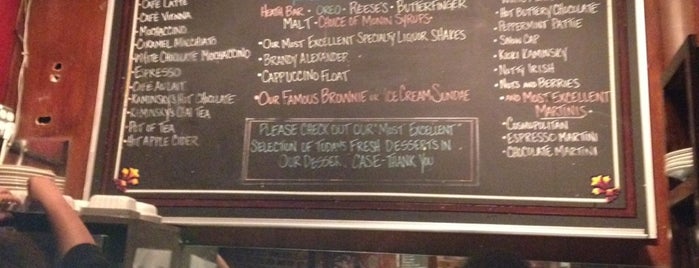 CAFE LATTE
- CAFE VIENNA
- MOCHACCINO
- CARAMEL MACCHIATO
- WHITE CHOCOLATE MOCHACCINO
- ESPRESSO
- CAFE AU LAIT
- KAMINSKY'S HOT CHOCOLATE
- KAMINSKY'S CHAI TEA
- POT OF TEA
- HOT APPLE CIDER
HEATH BAR · OREO · REESE'S · BUTTERFINGER
MALT · CHOICE OF MONIN SYRUPS ·
· OUR MOST EXCELLENT SPECIALTY LIQUOR SHAKES
· BRANDY ALEXANDER
· CAPPUCCINO FLOAT
· OUR FAMOUS BROWNIE OR ICE CREAM SUNDAE
PLEASE CHECK OUT OUR "MOST EXCELLENT"
SELECTION OF TODAYS FRESH DESSERTS IN
OUR DESSER. CASE - THANK YOU
- HOT BUTTERY CHOCOLATE
- PEPPERMINT PATTIE
- SNOW CAP
- KICKI KAMINSKY
- NUTTY IRISH
- NUTS AND BERRIES
- AND MOST EXCELLENT
MARTINIS -
- COSMOPOLITAN
- ESPRESSO MARTINI
- CHOCOLATE MARTINI